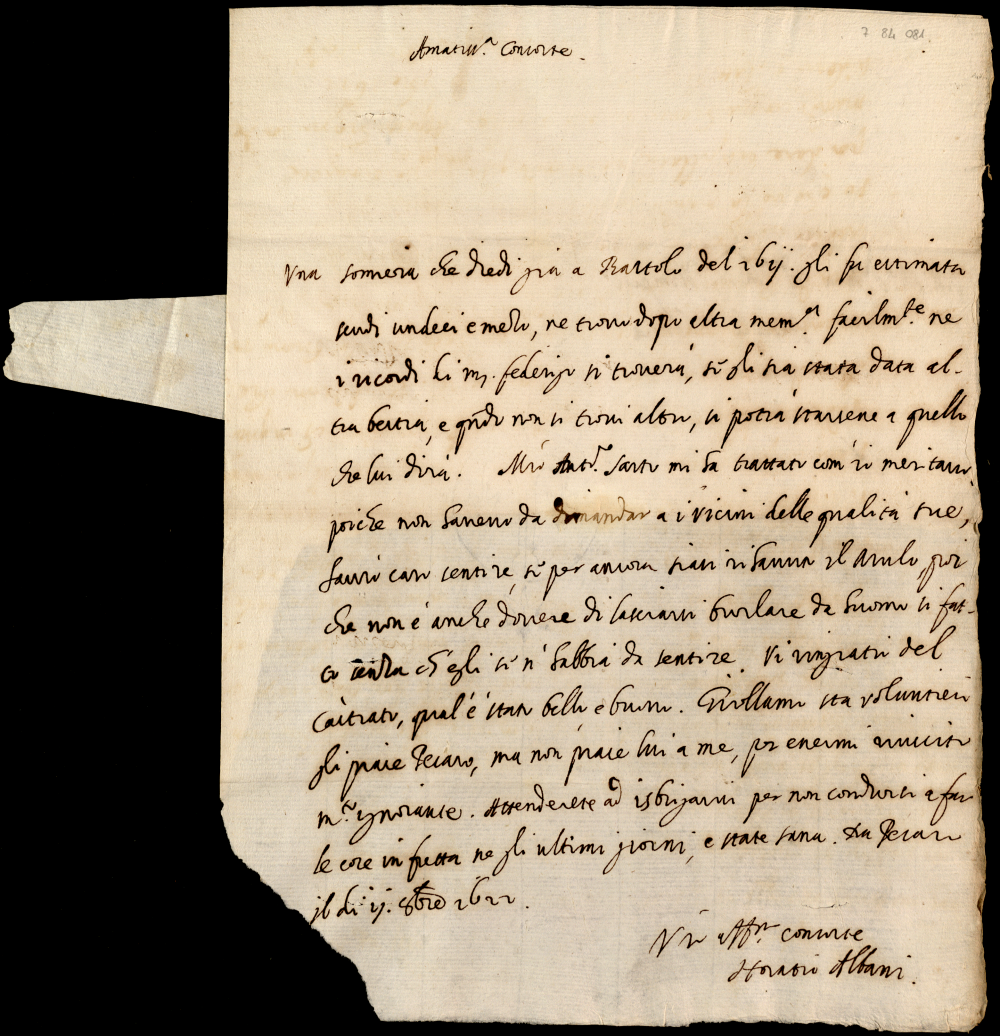 7 84 081.
Amatiss.ª Consorte.
Una somera che diedi già a Bartolo del 1611. gli fu estimata
scudi undeci e mezo, ne trovo dopo altra mem.ª facilm.te ne
i ricordi di m. federigo si troverà, se gli sia stata data al-
tra bestia, e qñdo non si trovi altro, si potrà starsene a quello
che lui dirà. Mro Ant.º Sarto mi ha trattato com' io meritavo
poiche non havevo da dimandar a i vicini delle qualità sue,
havrò caro sentire, se per ancora siasi rihavuto il Mulo, poi
che non è anche dovere di lasciarsi burlare da huomo si fat-
to senza ch' egli se n' habbia da sentire. Vi ringratio del
Castrato, qual' è stato bello e buono. Girollamo sta volontieri
gli piace Pesaro, ma non piace lui a me, per essermi riuscito
m.to ignorante. Attenderete ad isbrigarvi per non condursi a far
le cose in fretta ne gli ultimi giorni, e state sana. Da Pesaro
il dì 11. 8bre 1622.
Vro Aff.mo consorte
Horatio Albani.